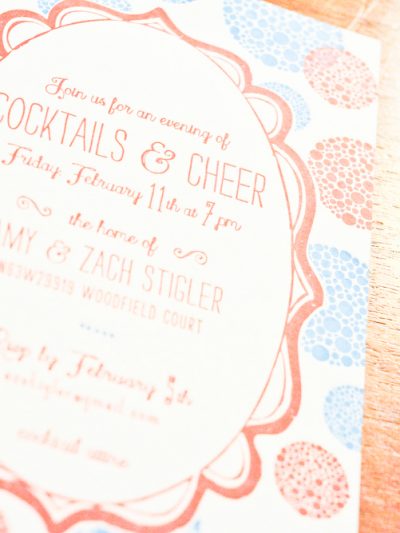 Join us for an evening of
COCKTAILS & CHEER
Friday February 11th at 7 pm
the home of
AMY & ZACH STIGLER
WOODFIELD COURT
by February
cocktail attire